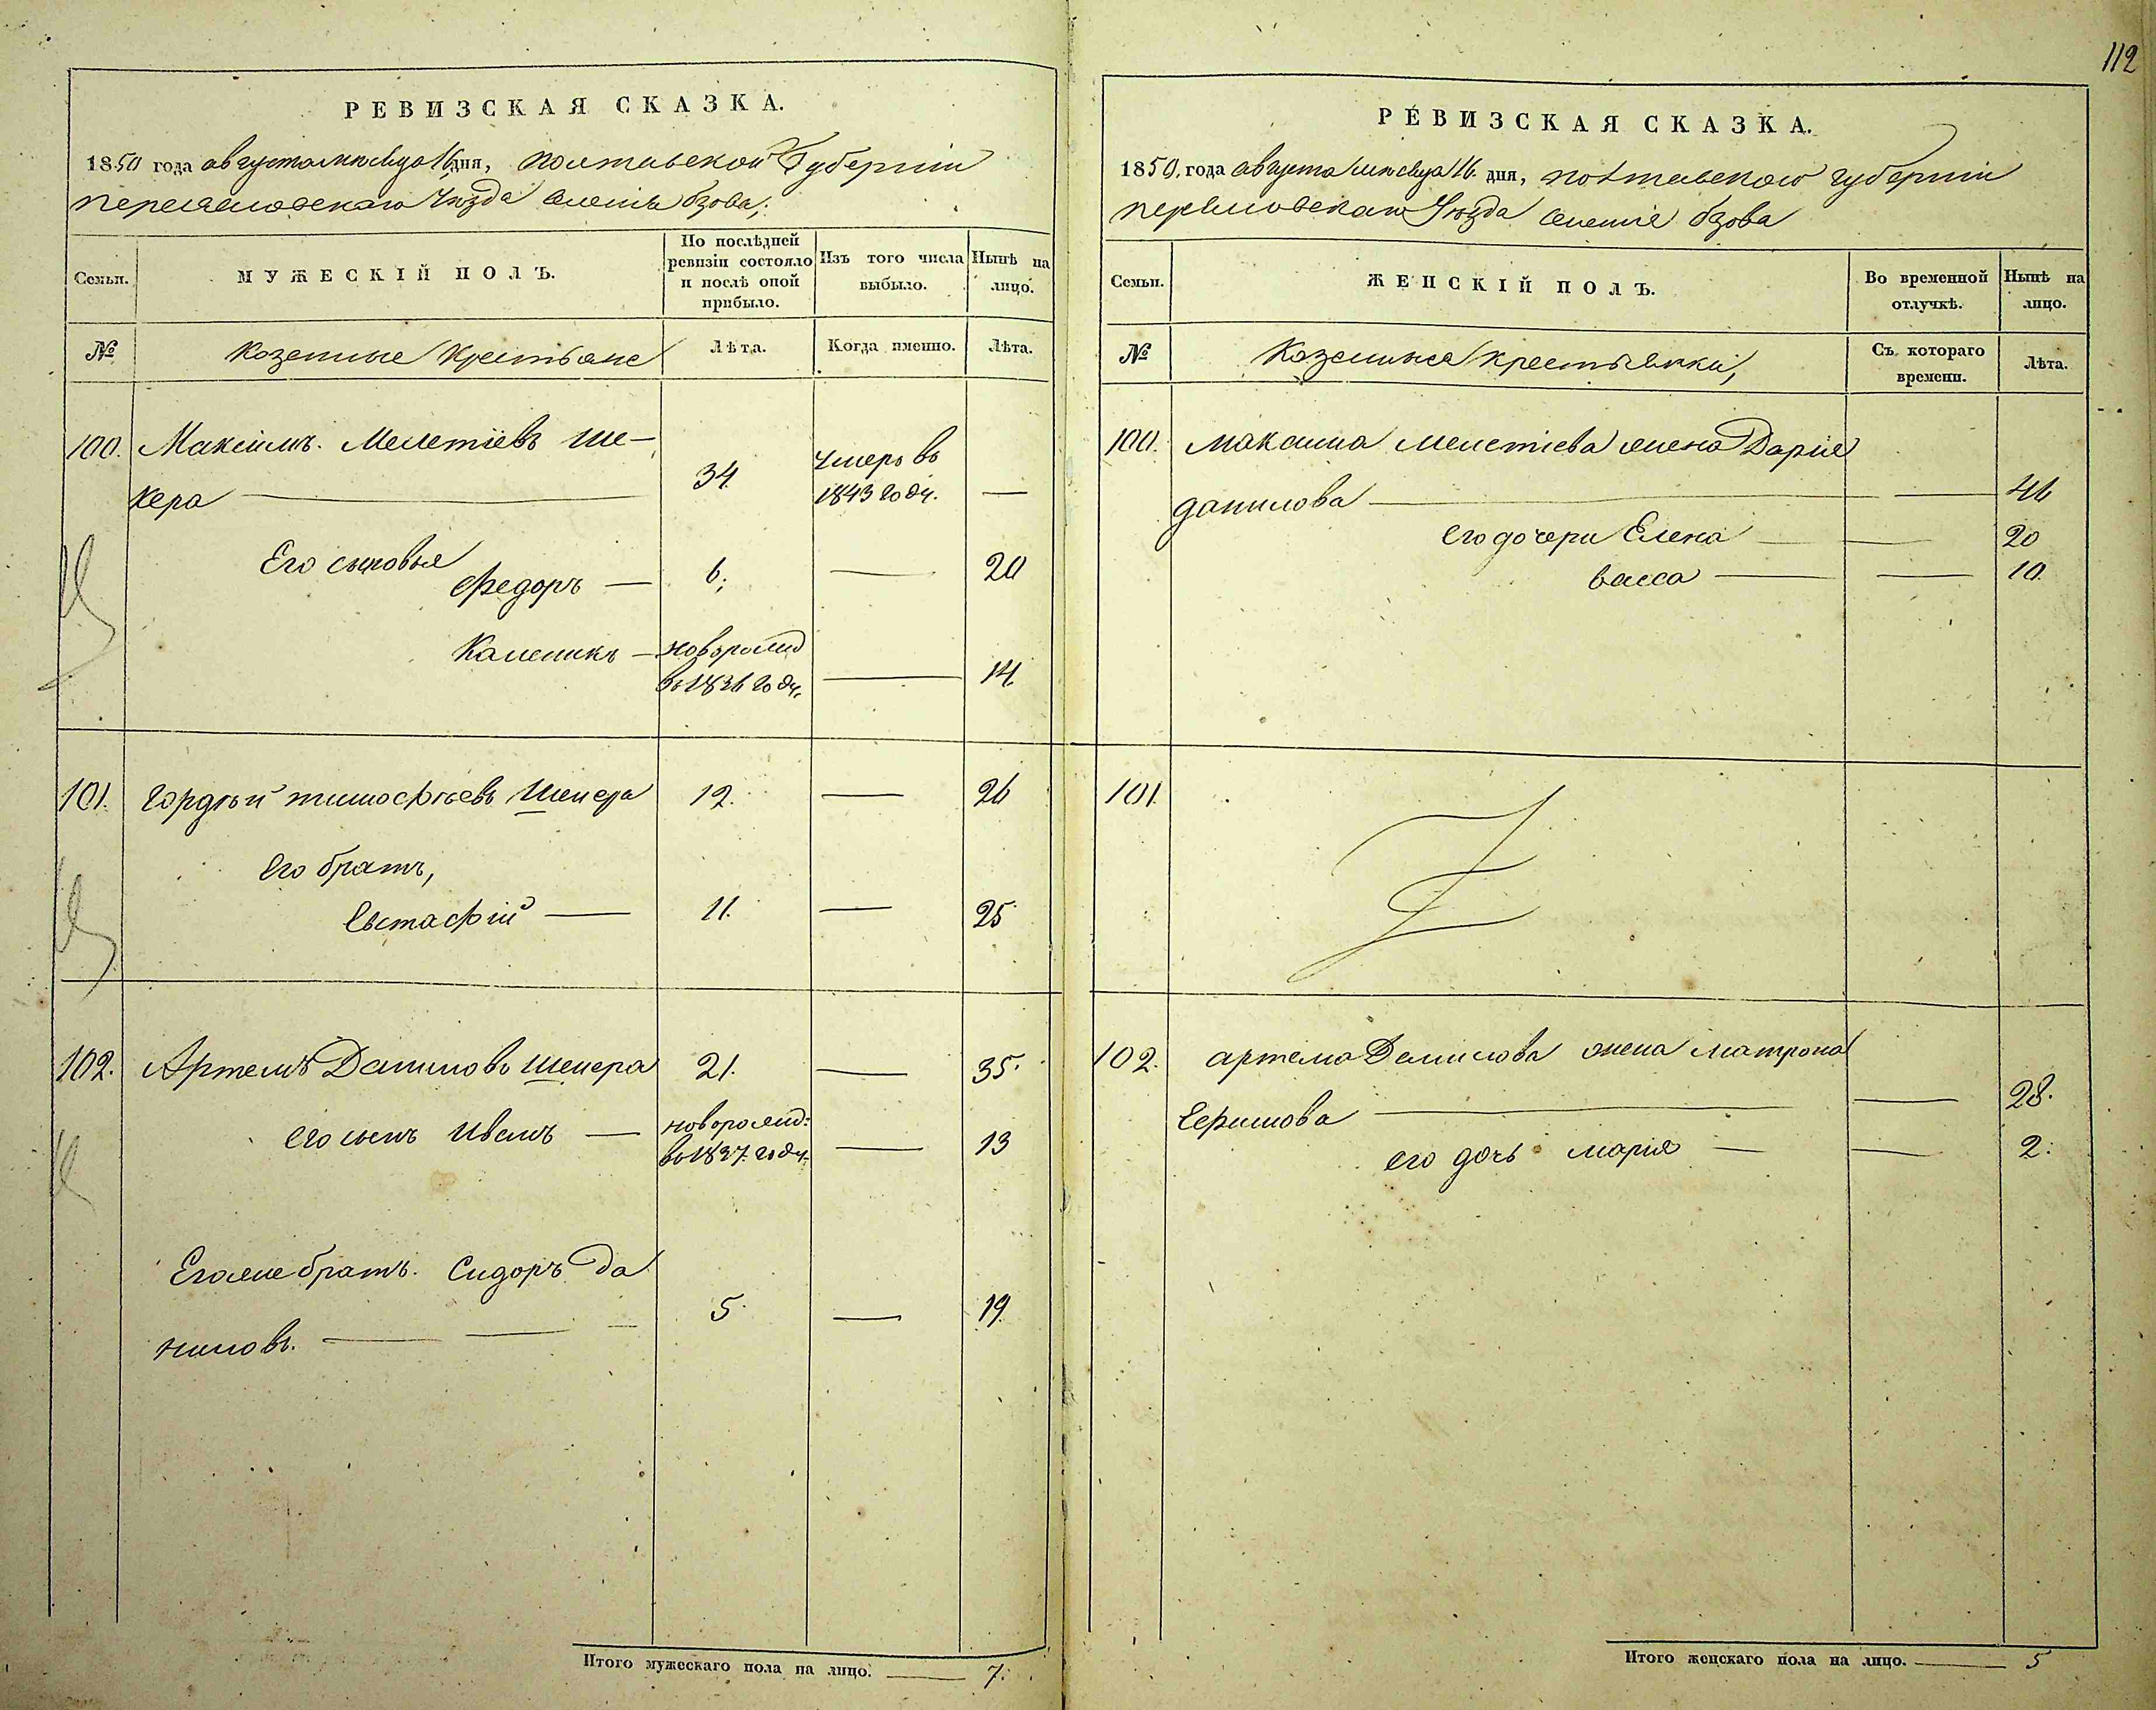 112
РЕВИЗСКАЯ СКАЗКА.
1850 года августа месяца 16 дня, Полтавской Губерніи
Переяславскаго Уѣзда Селенія Бзова;
Семьи.
МУЖЕСКІЙ ПОЛЪ.
По послѣдней ревизіи состояло и послѣ оной прибыло.
Изъ того числа выбыло.
Нынѣ на лицо.
№
Казенные Крестьяне
Лѣта.
Когда именно.
Лѣта.
100. Максимъ Мелетіевъ Ше-
кера 34. Умеръ въ 1843 году. —
Его сыновья
Федоръ — 6; — 20
Каленикъ — новорожд въ 1836 году. — 14
101. Гордѣй Тимофѣевъ Шекера 12. — 26
Его братъ,
Евстафій — 11. — 25
102. Артемъ Даниловъ Шекера 21. — 35.
Его сынъ Иванъ — новорожд: въ 1837. году. — 13
Его же братъ. Сидоръ Да
ниловъ. — 5. — 19.
Итого мужескаго пола на лицо. — 7.
РЕВИЗСКАЯ СКАЗКА.
1850. года августа месяца 16. дня, Полтавской губерніи
Переяславскаго Уѣзда Селенія Бзова
Семьи.
ЖЕНСКІЙ ПОЛЪ.
Во временной отлучкѣ.
Нынѣ на лицо.
№
Казенные крестьянки,
Съ котораго времени.
Лѣта.
100. Максима Мелетіева жена Дарія
Данилова — — 41
Его дочери Елена — — 20
Васса — — 10.
101.
102. Артема Данилова жена Матрона
Ефимова — — 28.
его дочь Марія — — 2.
Итого женскаго пола на лицо. — 5